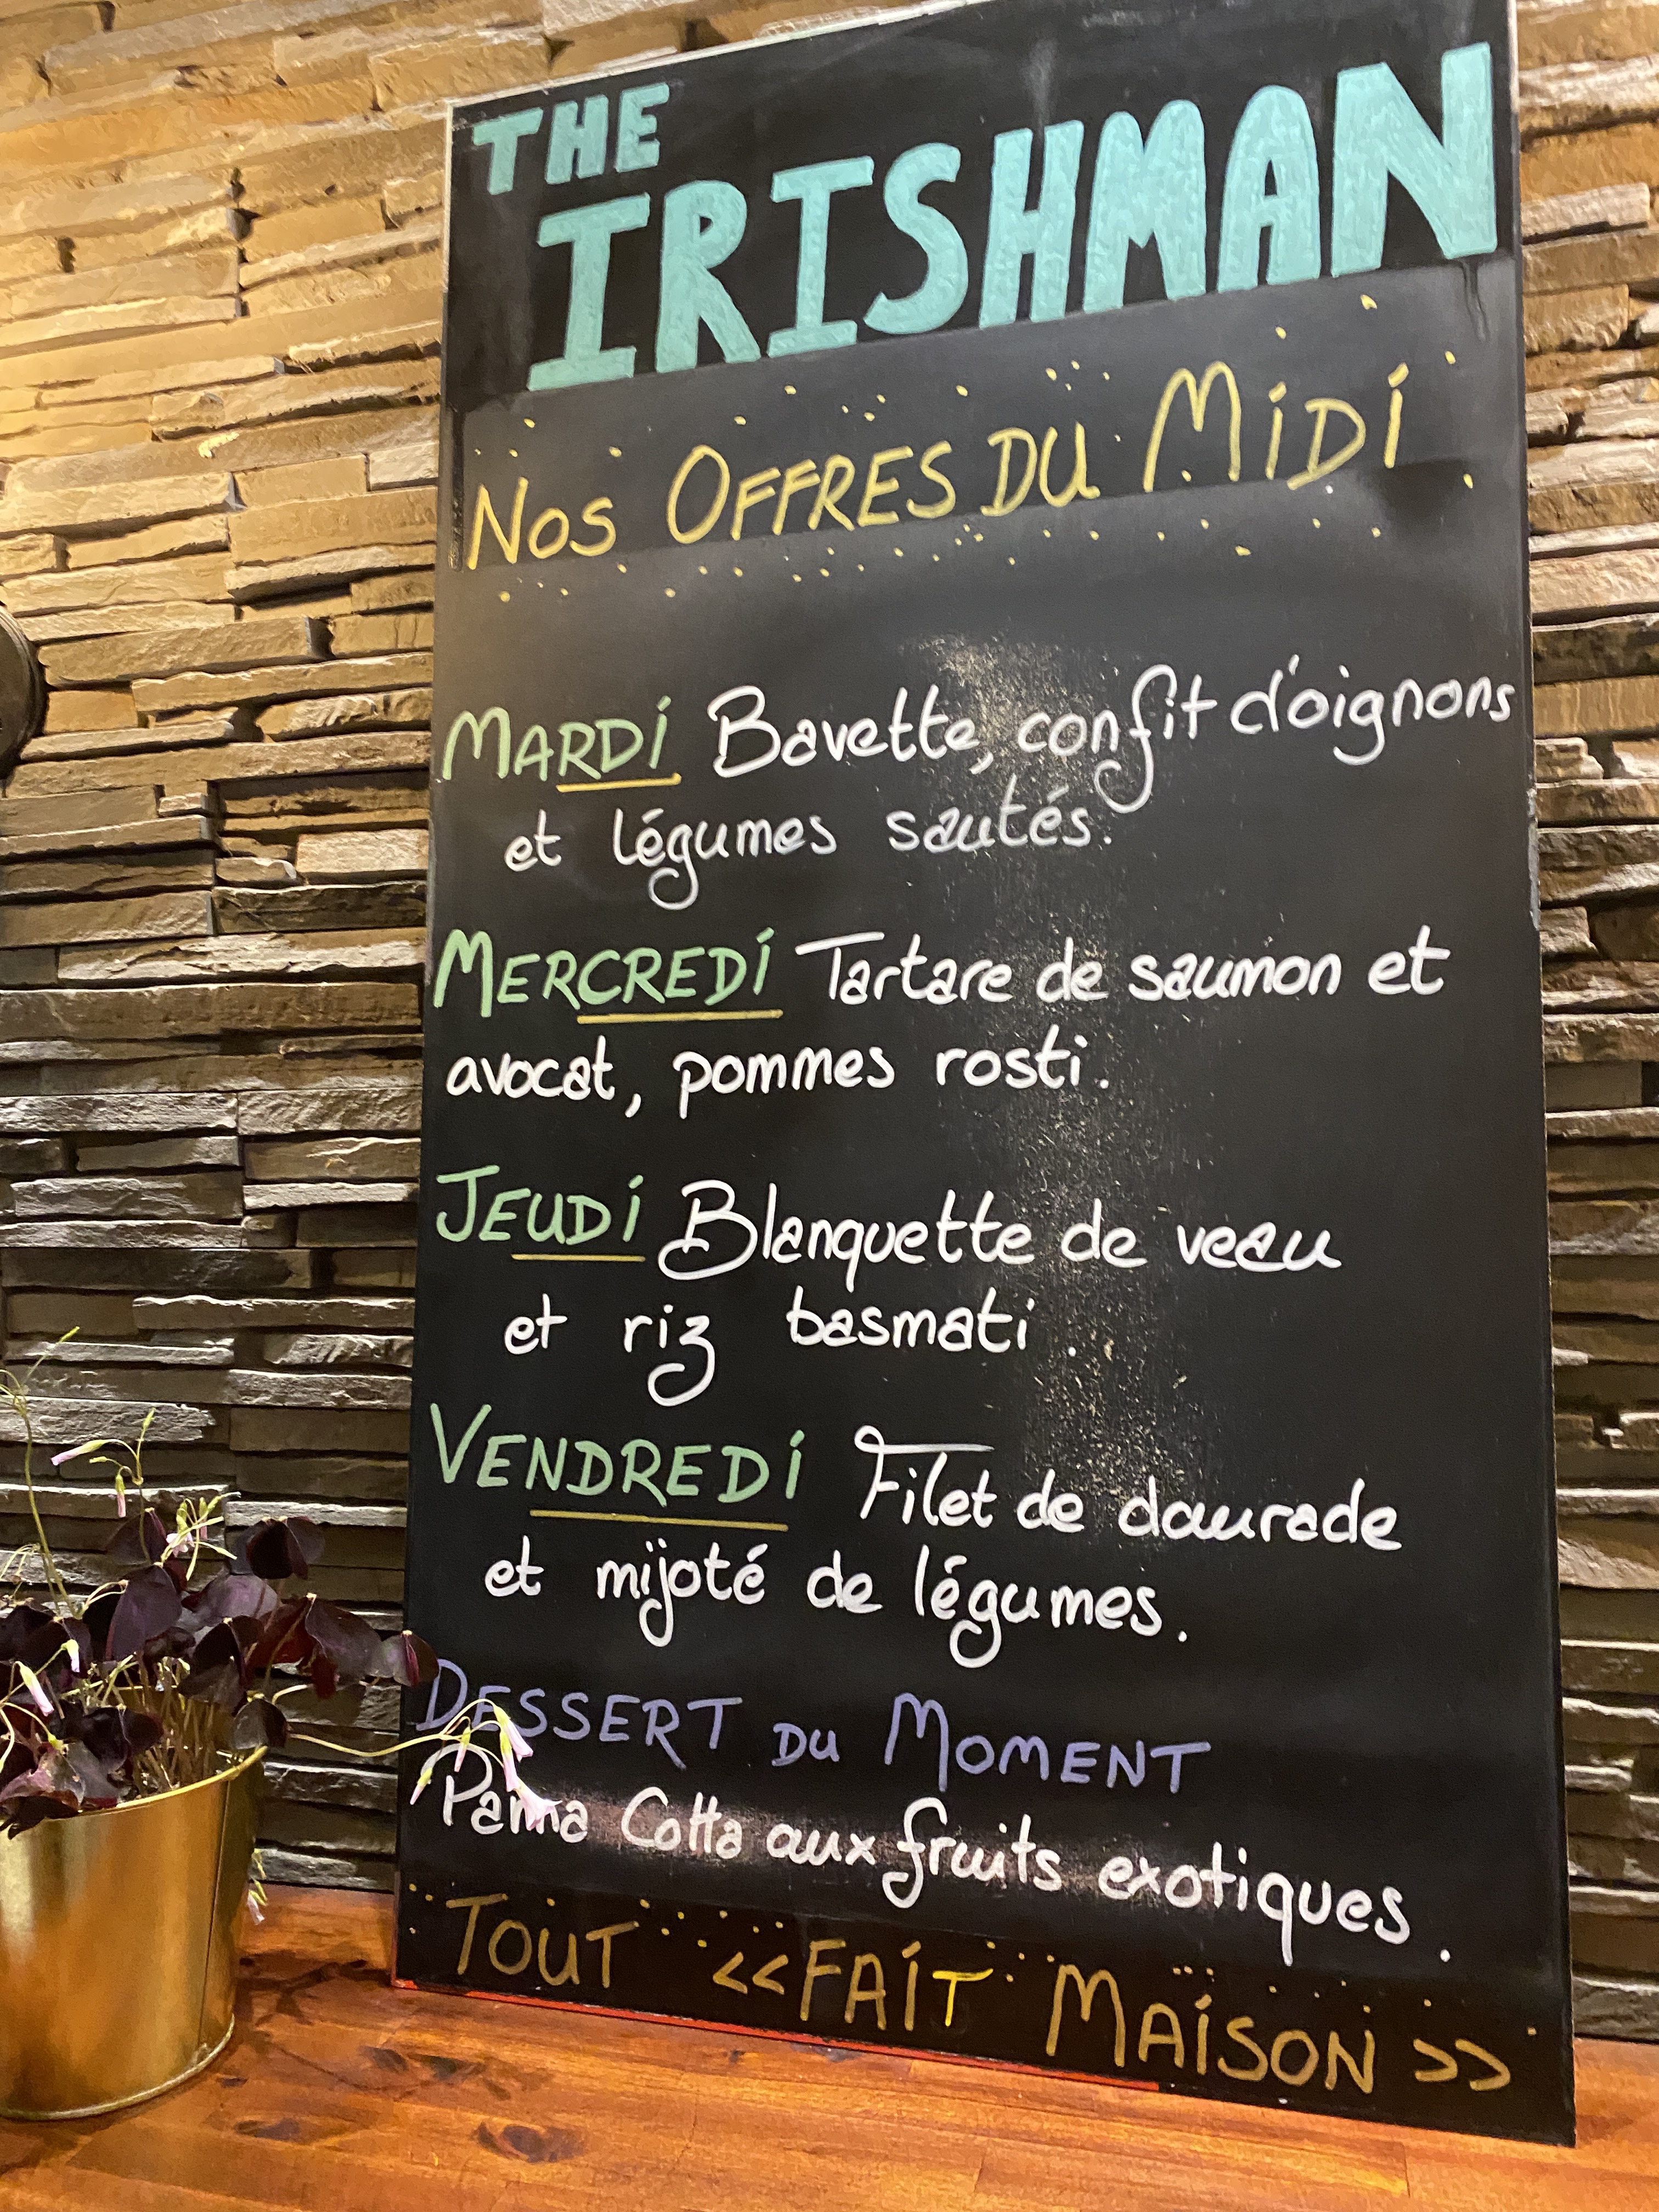 THE
IRISHMAN
NOS OFFRES DU MIDI
MARDI Bavette, confit d'oignons
et légumes sautés.
MERCREDI Tartare de saumon et
avocat, pommes rosti.
JEUDI Blanquette de veau
et riz basmati.
VENDREDI Filet de daurade
et mijoté de légumes.
DESSERT DU MOMENT
Panna Cotta aux fruits exotiques.
TOUT <<FAIT MAISON>>